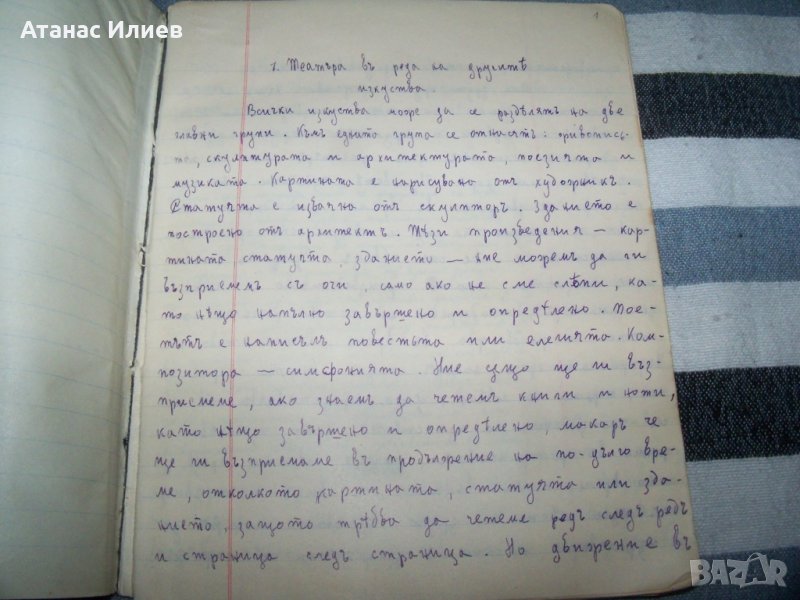 Атанас Илиев
1
1. Театъра въ реда на другитѣ
изкуства.
Всички изкуства може да се раздѣлятъ на две
главни групи. Къмъ едната група се отнасятъ: живопись-
та, скулптурата и архитектурата, поезията и
музиката. Картината е нарисувана отъ художникъ.
Статуята е изваяна отъ скулпторъ. Зданието е
построено отъ архитектъ. Тѣзи произведения — кар-
тината, статуята, зданието — ние можемъ да ги
възприемемъ съ очи, само ако не сме слѣпи, ка-
то нѣщо напълно завършено и опредѣлено. Пое-
тътъ е написалъ повестьта или елегията. Ком-
позитора — симфонията. Ние също ще ги въз-
приемеме, ако знаемъ да четемъ книги и ноти,
като нѣщо завършено и опредѣлено, макаръ че
ще ги възприемаме въ продължение на по-дълго вре-
ме, отколкото картината, статуята или зда-
нието, защото трѣбва да четеме редъ следъ редъ
и страница следъ страница. Но движение въ
BAZAR